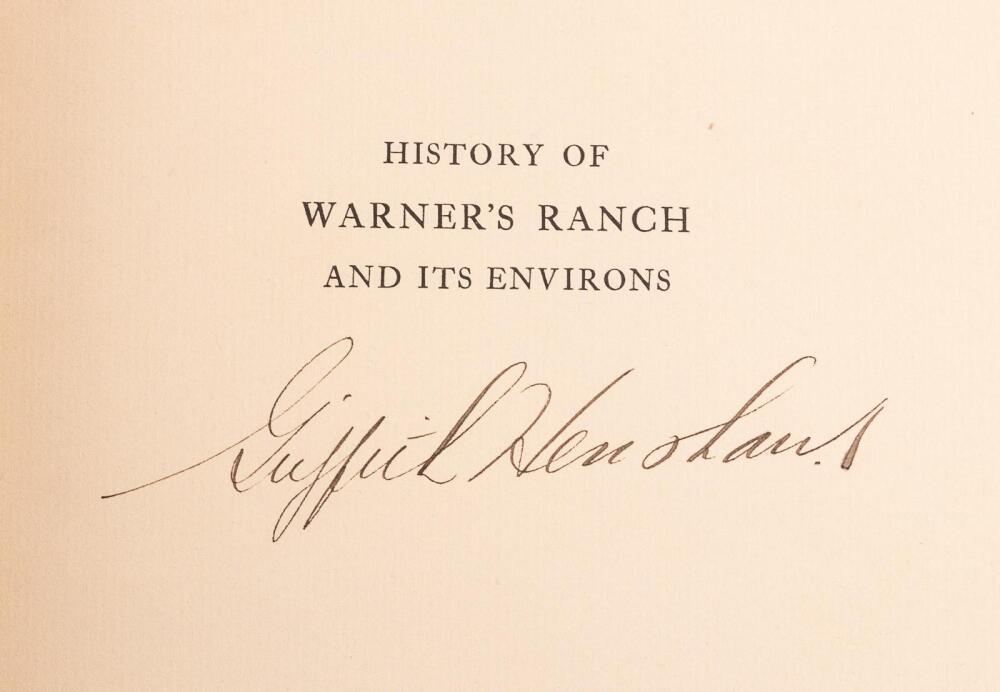 HISTORY OF
WARNER'S RANCH
AND ITS ENVIRONS
Griffith Henshaw.